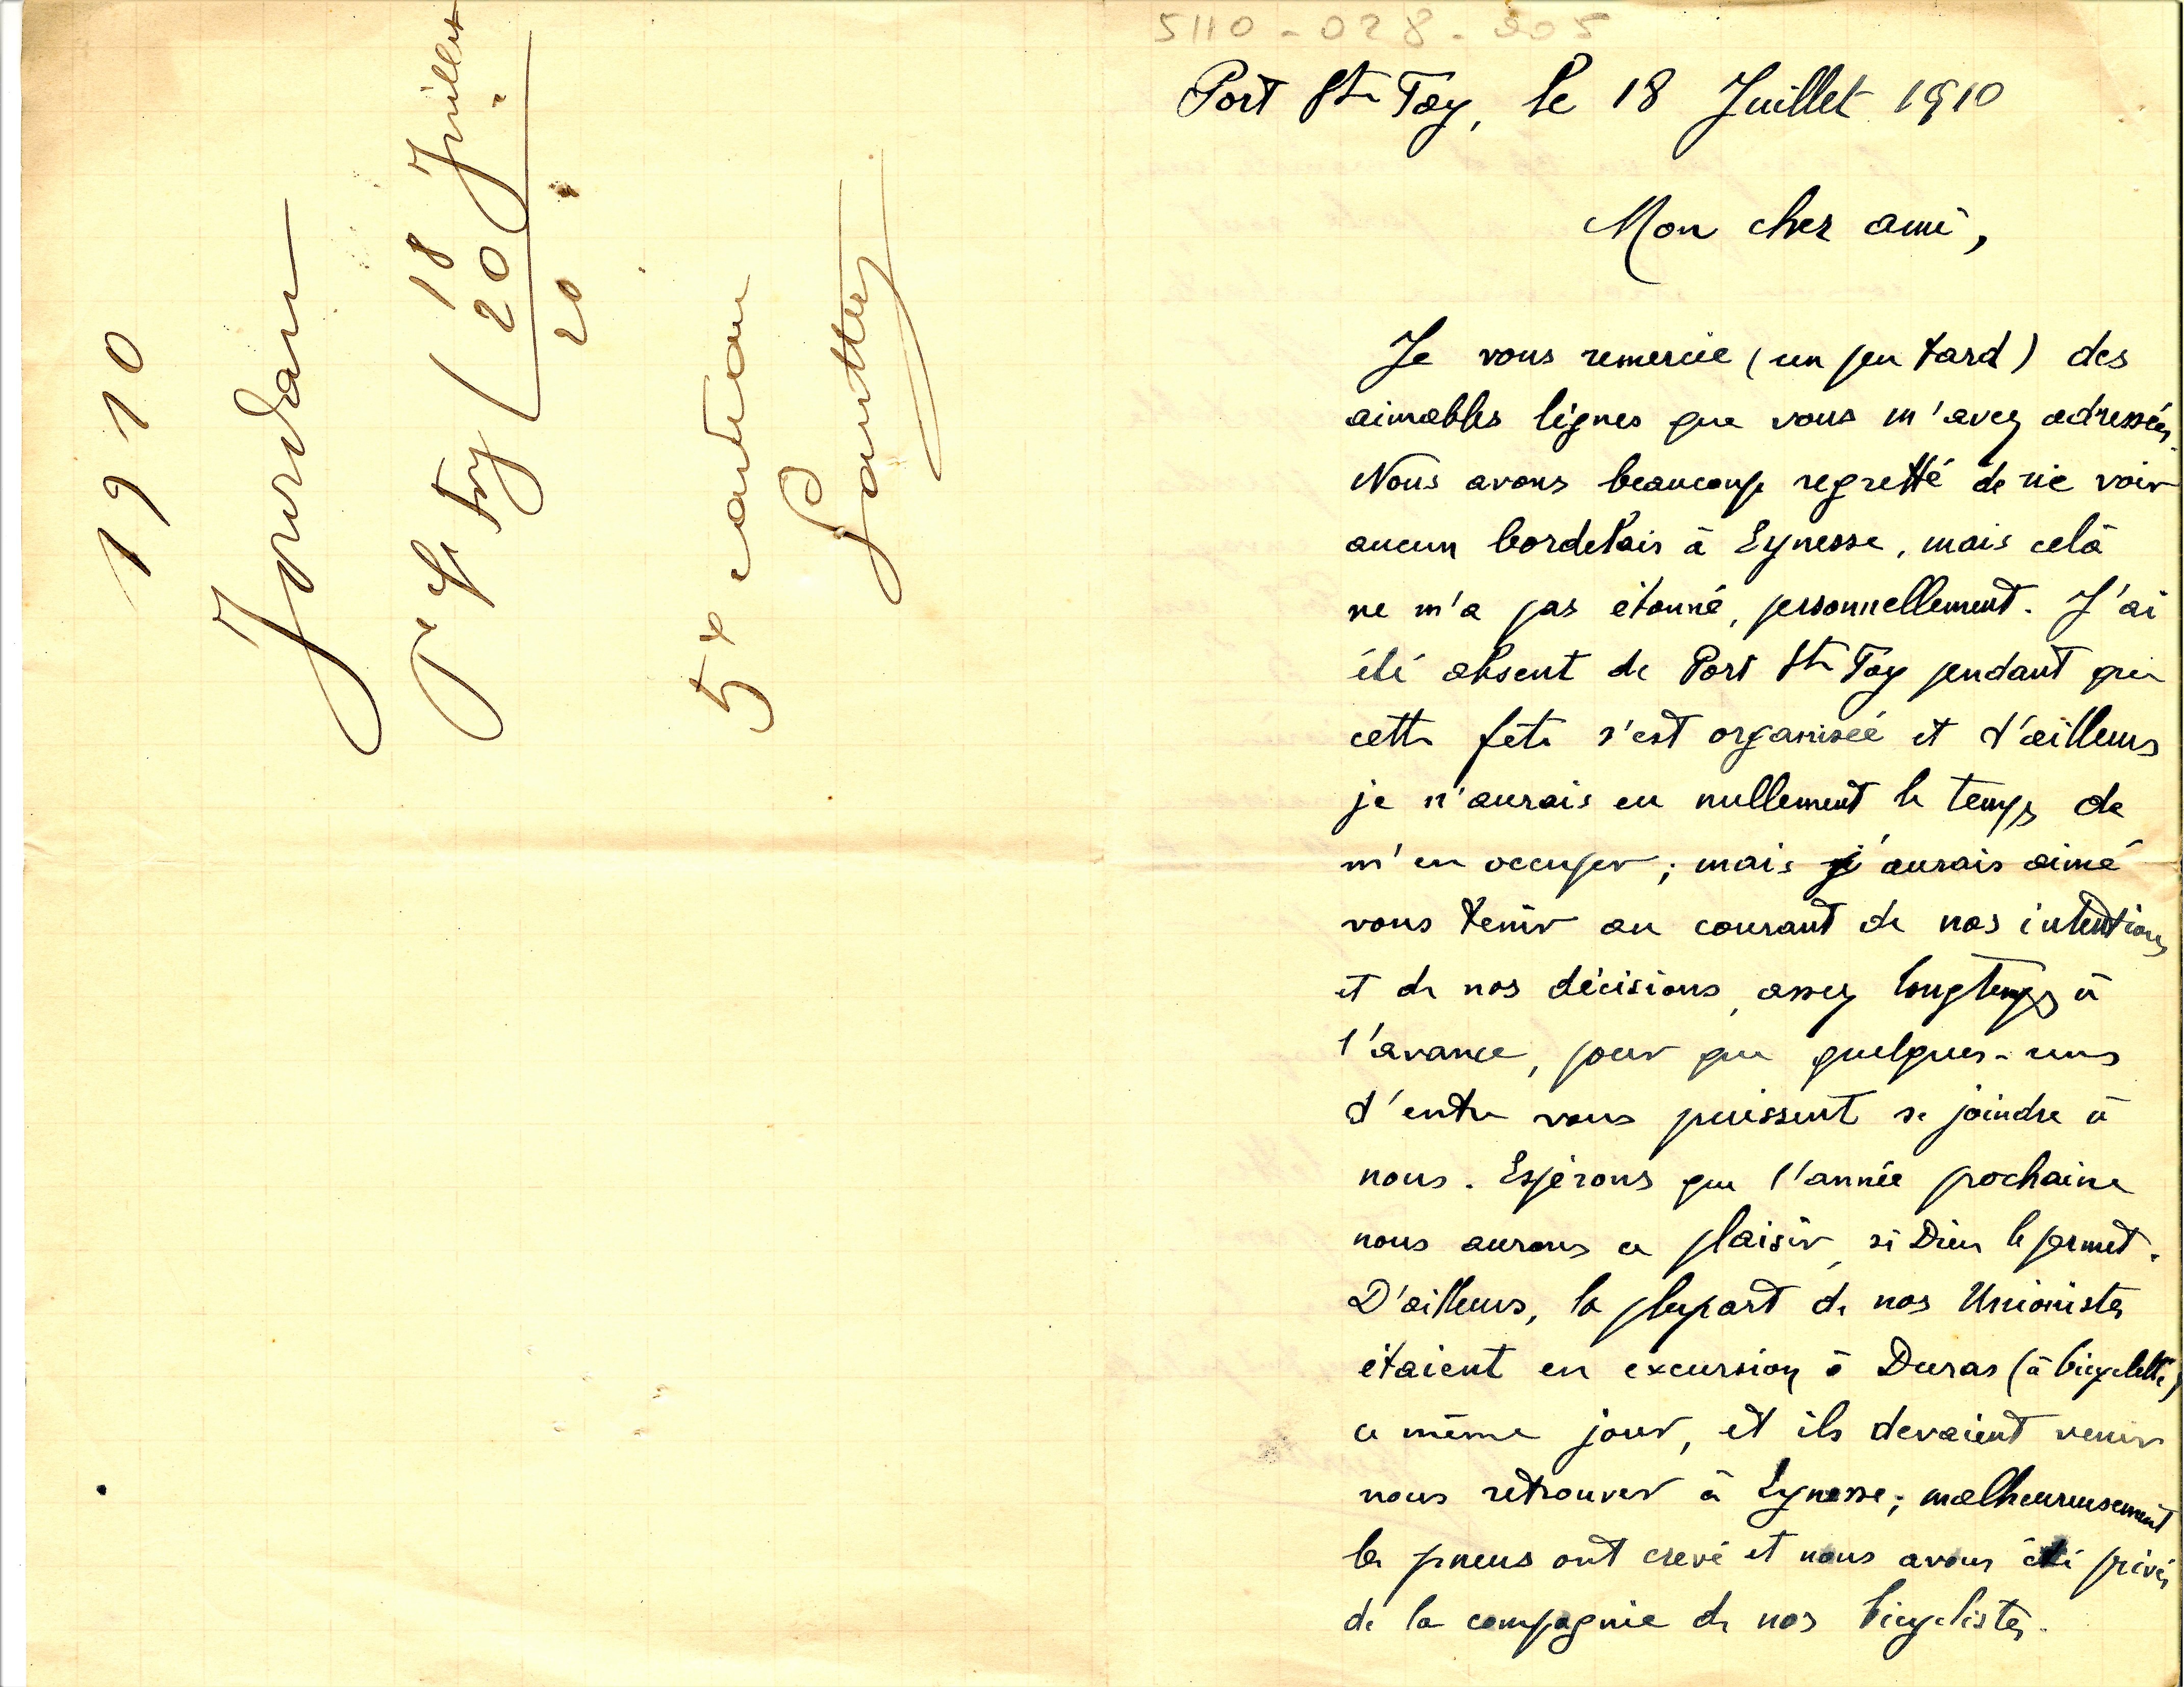 1910
Jourdan
Pt Ste Foy
18
20 Juillet
20
5x caution
5110-028-205
Port Ste Foy, le 18 Juillet 1910
Mon cher ami,
Je vous remercie (un peu tard) des
aimables lignes que vous m'avez adressées.
Nous avons beaucoup regretté de ne voir
aucun bordelais à Eynesse, mais celà
ne m'a pas étonné, personnellement. J'ai
été absent de Port Ste Foy pendant que
cette fête s'est organisée et d'ailleurs
je n'aurais eu nullement le temps de
m'en occuper ; mais j'aurais aimé
vous tenir au courant de nos intentions
et de nos décisions, assez longtemps à
l'avance, pour que quelques-uns
d'entre vous puissent se joindre à
nous. Espérons que l'année prochaine
nous aurons ce plaisir, si Dieu le permet.
D'ailleurs, la plupart de nos Unionistes
étaient en excursion à Duras (à bicyclette)
ce même jour, et ils devaient venir
nous retrouver à Eynesse ; malheureusement
les pneus ont crevé et nous avons été privés
de la compagnie de nos bicyclistes.